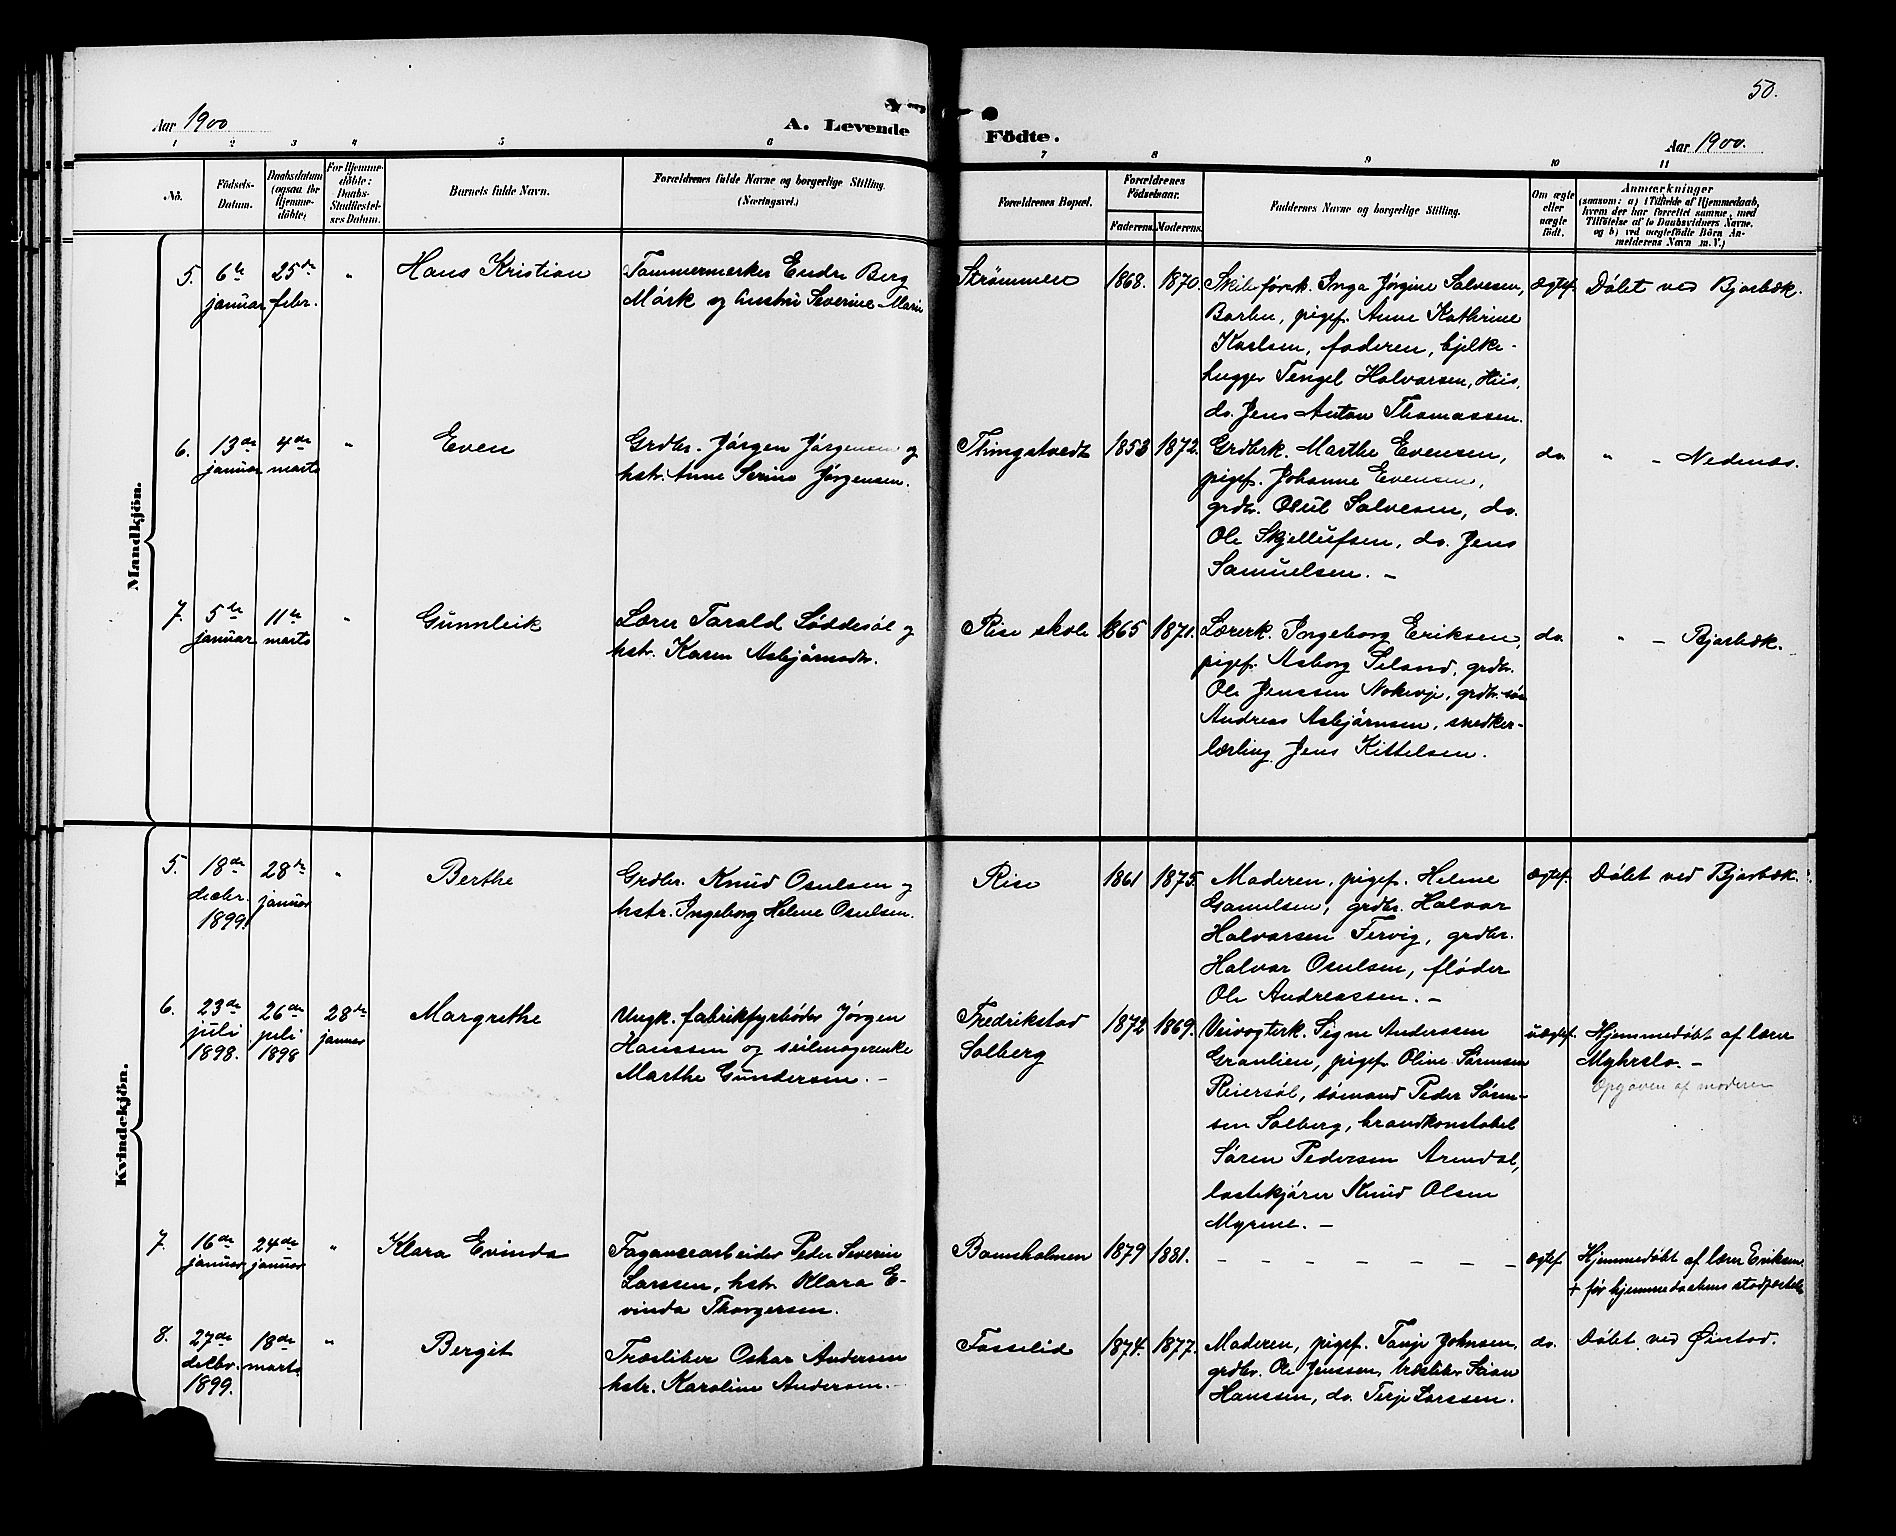 50.
Aar 1900
A. Levende
Födte.
Aar 1900.
1 2 3 4 5 6 7 8 9 10 11
No.
Födsels-
Datum.
Daabsdatum
(ogsaa for
Hjemme-
döbte).
For Hjemme-
döbte:
Daabs-
Stadfæstel-
ses Datum.
Barnets fulde Navn.
Forældrenes fulde Navne og borgerlige Stilling.
(Næringsvei.)
Forældrenes Bopæl.
Forældrenes
Födselsaar.
Faderens. Moderens.
Faddernes Navne og borgerlige Stilling.
Om ægte
eller
uægte
födt.
Anmærkninger
(saasom: a) i Tilfælde af Hjemmedaab,
hvem der har forrettet samme, med
Tilföielse af to Daabsvidners Navne,
og b) ved uægtefödte Börn An-
melderens Navn m. V.)
Mandkjön.
5. 6te
januar
25de
febr.
"
Hans Kristian
Tømmermerker Endre Berg
Mørk og hustru Severine Marie
Strømmen
1868. 1870.
Skibsførerk. Inga Jørgine Salvesen,
Barbu, pigef. Anne Kathrine
Karlsen, faderen, bjelke-
hugger Tengel Halvorsen, Hiis,
do. Jens Anton Thomassen.
Ægtef.
Døbt ved Bjorbæk.
6. 13de
januar
4de
marts
"
Even
Grdbr. Jørgen Jørgensen og
hstr. Anne Serine Jørgensen.
Thingstvedt
1853 1872.
Grdbrk. Marthe Evensen,
pigef. Johanne Evensen,
grdbr. Osul Salvesen, do.
Ole Skjellufsen, do. Jens
Samuelsen. —
do.
" — Nedenæs.
7. 5te
januar
11te
marts
"
Gunnleik
Lærer Tarald Løddesøl og
hstr. Karen Asbjørnsdtr.
Rise skole
1865 1871.
Lærerk. Ingeborg Eriksen,
pigef. Asborg Seland, grdbr.
Ole Jenssen Nokevje, grdbr.søn
Andreas Asbjørnsen, snedker-
lærling Jens Kittelsen.
do.
" — Bjorbæk.
Kvindekjön.
5. 18de
decbr.
1899.
28de
januar
"
Berthe
Grdbr. Knud Osulsen og
hstr. Ingeborg Helene Osulsen.
Rise
1861 1875.
Moderen, pigef. Helene
Gamelsen, grdbr. Halvor
Halvorsen Tervig, grdbr.
Halvor Osulsen, fløder
Ole Andreassen. —
Ægtef.
Døbt ved Bjorbæk.
6. 23de
juli
1898.
26de
juli
1898
28de
januar
Margrethe
Ungk. fabrikfyrbøder Jørgen
Hanssen og seilmagerenke
Marthe Gundersen. —
Fredrikstad
Solberg
1872 1869.
Veivogterk. Signe Anderssen
Granlien, pigef. Oline Sørensen
Reiersøl, sømand Peder Søren-
sen Solberg, brandkonstabel
Søren Pedersen Arendal,
lastekjører Knud Olsen
Myrene. —
uægtef.
Hjemmedøbt af lærer
Myhrslo. —
Opgaven af moderen
7. 16de
januar
24de
januar
"
Klara Evinda
Fagansearbeider Peder Severin
Larssen, hstr. Klara E-
vinda Thorgersen.
Bomsholmen
1879 1881.
— — — — — — —
Ægtef
Hjemmedøbt af lærer Eriksen.
+ før hjemmedaabens stadfæstelse
8. 27de
decbr.
1899.
18de
marts
"
Bergit
Træsliber Oskar Andersen
hstr. Karoline Andersen.
Fosselid
1874. 1877.
Moderen, pigef. Tanje Johnsen,
grdbr. Ole Jenssen, træsliber
Hanssen, do. Terje Larssen.
do.
Døbt ved Øinstad.